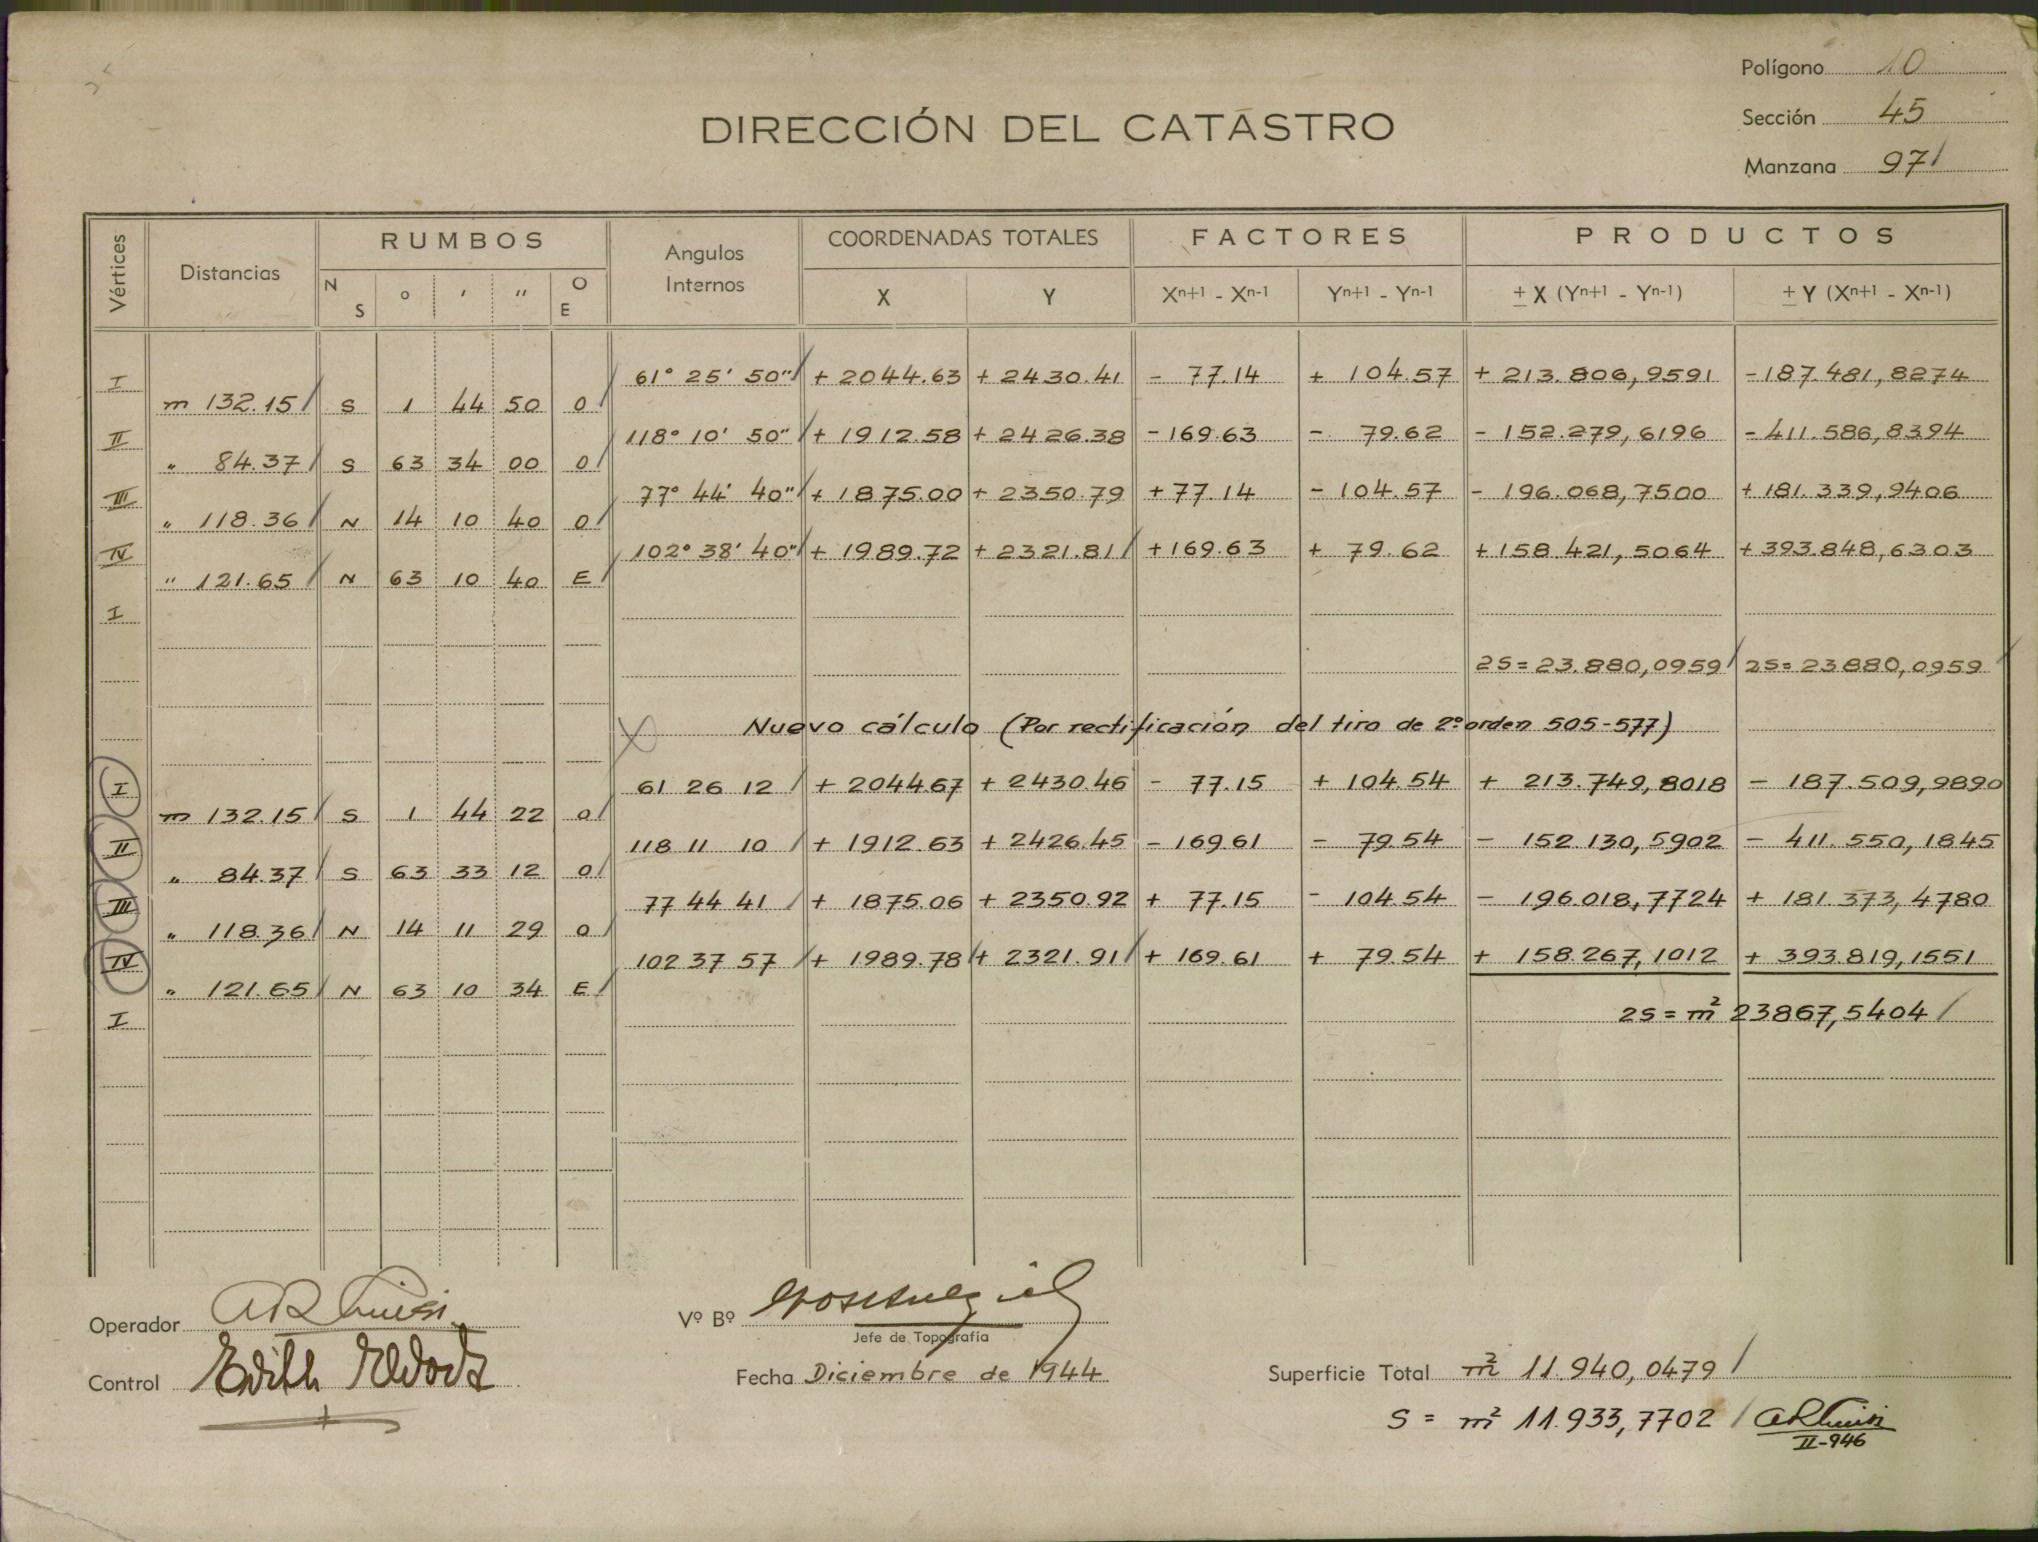 Polígono 10
DIRECCIÓN DEL CATASTRO
Sección 45
Manzana 97
Vértices Distancias RUMBOS Angulos Internos COORDENADAS TOTALES FACTORES PRODUCTOS
N S ° ' '' O E X Y Xn+1 - Xn-1 Yn+1 - Yn-1 ± X (Yn+1 - Yn-1) ± Y (Xn+1 - Xn-1)
I 61° 25' 50" + 2044.63 + 2430.41 - 77.14 + 104.57 + 213.806,9591 - 187.481,8274
m 132.15 S 1 44 50 O
II 118° 10' 50" + 1912.58 + 2426.38 - 169.63 - 79.62 - 152.279,6196 - 411.586,8394
" 84.37 S 63 34 00 O
III 77° 44' 40" + 1875.00 + 2350.79 + 77.14 - 104.57 - 196.068,7500 + 181.339,9406
" 118.36 N 14 10 40 O
IV 102° 38' 40" + 1989.72 + 2321.81 + 169.63 + 79.62 + 158.421,5064 + 393.848,6303
" 121.65 N 63 10 40 E
I
2S = 23.880,0959 2S = 23.880,0959
Nuevo cálculo (Por rectificación del tiro de 2º orden 505-577)
I 61 26 12 + 2044.67 + 2430.46 - 77.15 + 104.54 + 213.749,8018 - 187.509,9890
m 132.15 S 1 44 22 O
II 118 11 10 + 1912.63 + 2426.45 - 169.61 - 79.54 - 152.130,5902 - 411.550,1845
" 84.37 S 63 33 12 O
III 77 44 41 + 1875.06 + 2350.92 + 77.15 - 104.54 - 196.018,7724 + 181.373,4780
" 118.36 N 14 11 29 O
IV 102 37 57 + 1989.78 + 2321.91 + 169.61 + 79.54 + 158.267,1012 + 393.819,1551
" 121.65 N 63 10 34 E
I 2S = m² 23867,5404
Operador Vº Bº
Jefe de Topografía
Control Edith
Fecha Diciembre de 1944
Superficie Total m² 11.940,0479
S = m² 11.933,7702
II-946